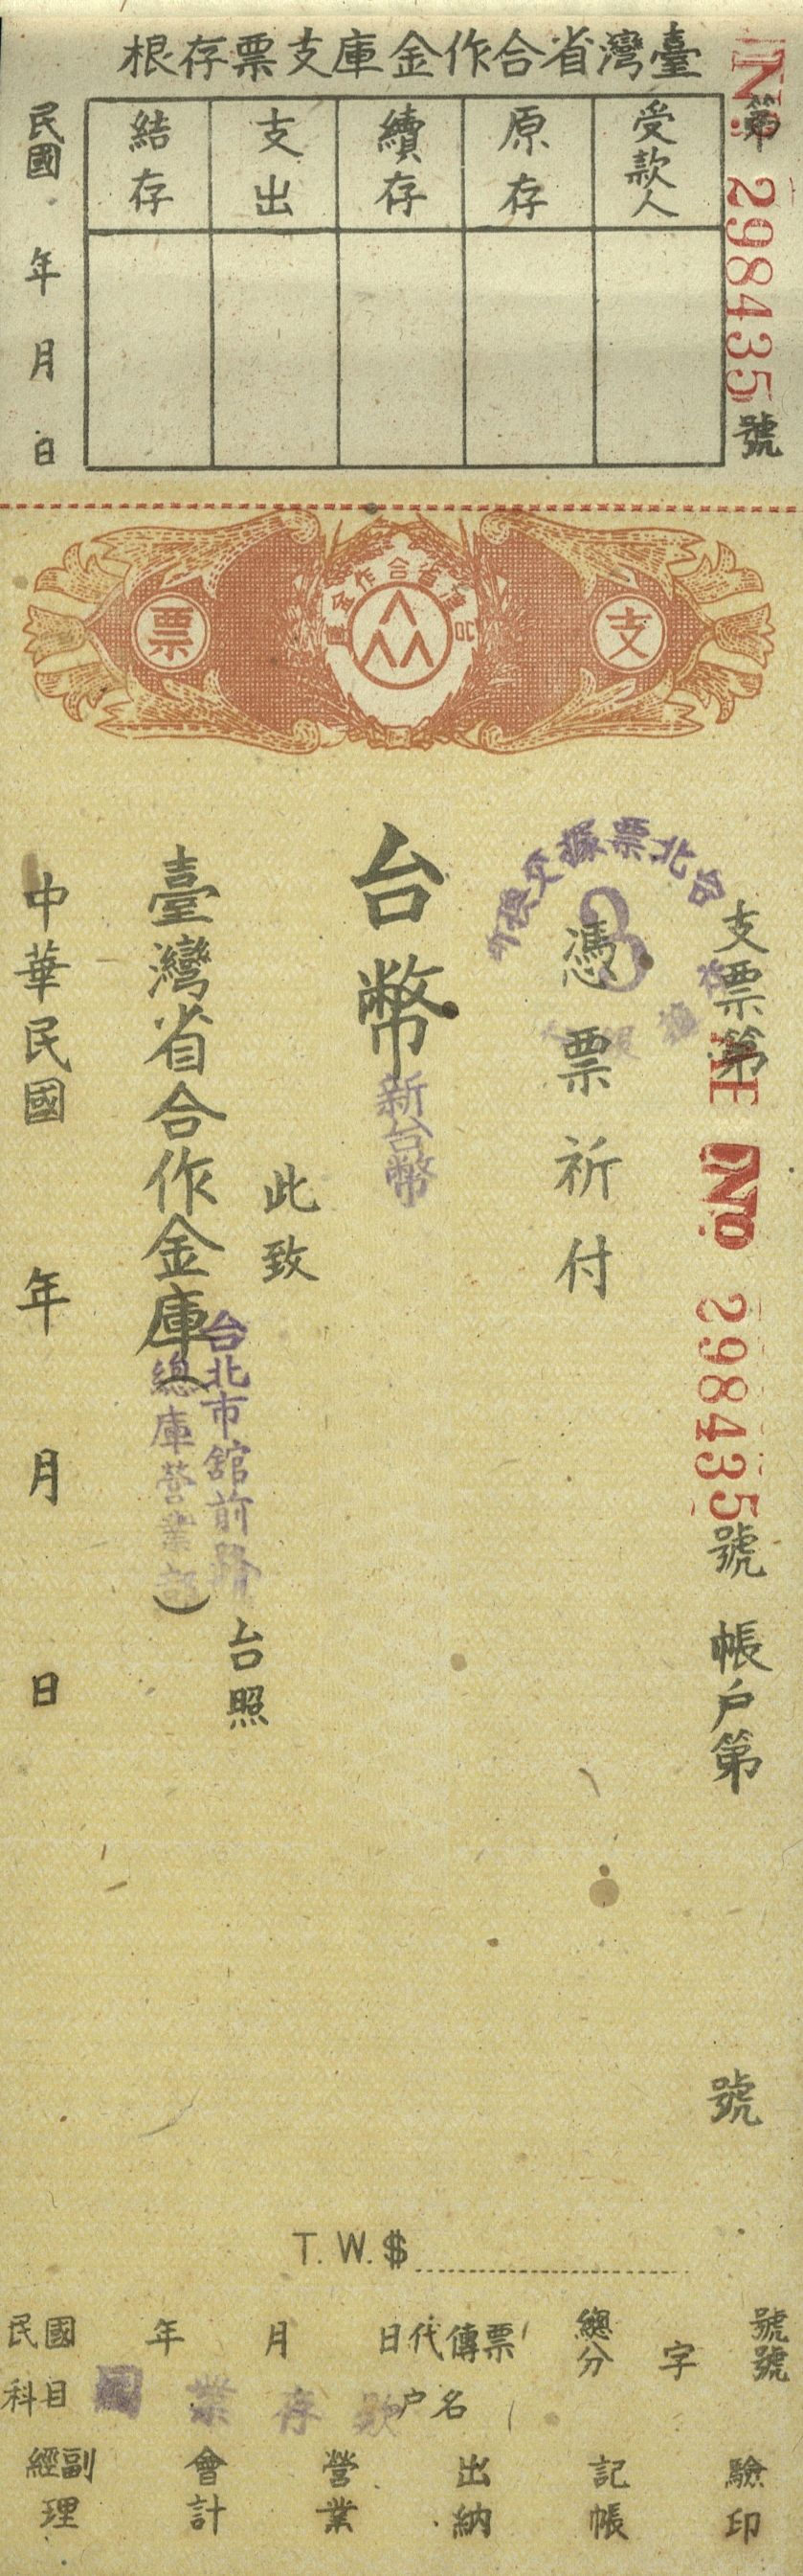 臺灣省合作金庫支票存根
第 No 298435 號
受款人
原存
續存
支出
結存
民國 年 月 日
支
台灣省合作金庫
票
支票第 AE No 298435 號 帳戶第 號
台北票據交換
3
憑票祈付
台幣
新台幣
此致
臺灣省合作金庫（總庫營業部）
台北市舘前路
台照
中華民國 年 月 日
T. W. $
民國 年 月 日代傳票 總分 字 號號
科目 業存款 戶名
經副理 會計 營業 出納 記帳 驗印